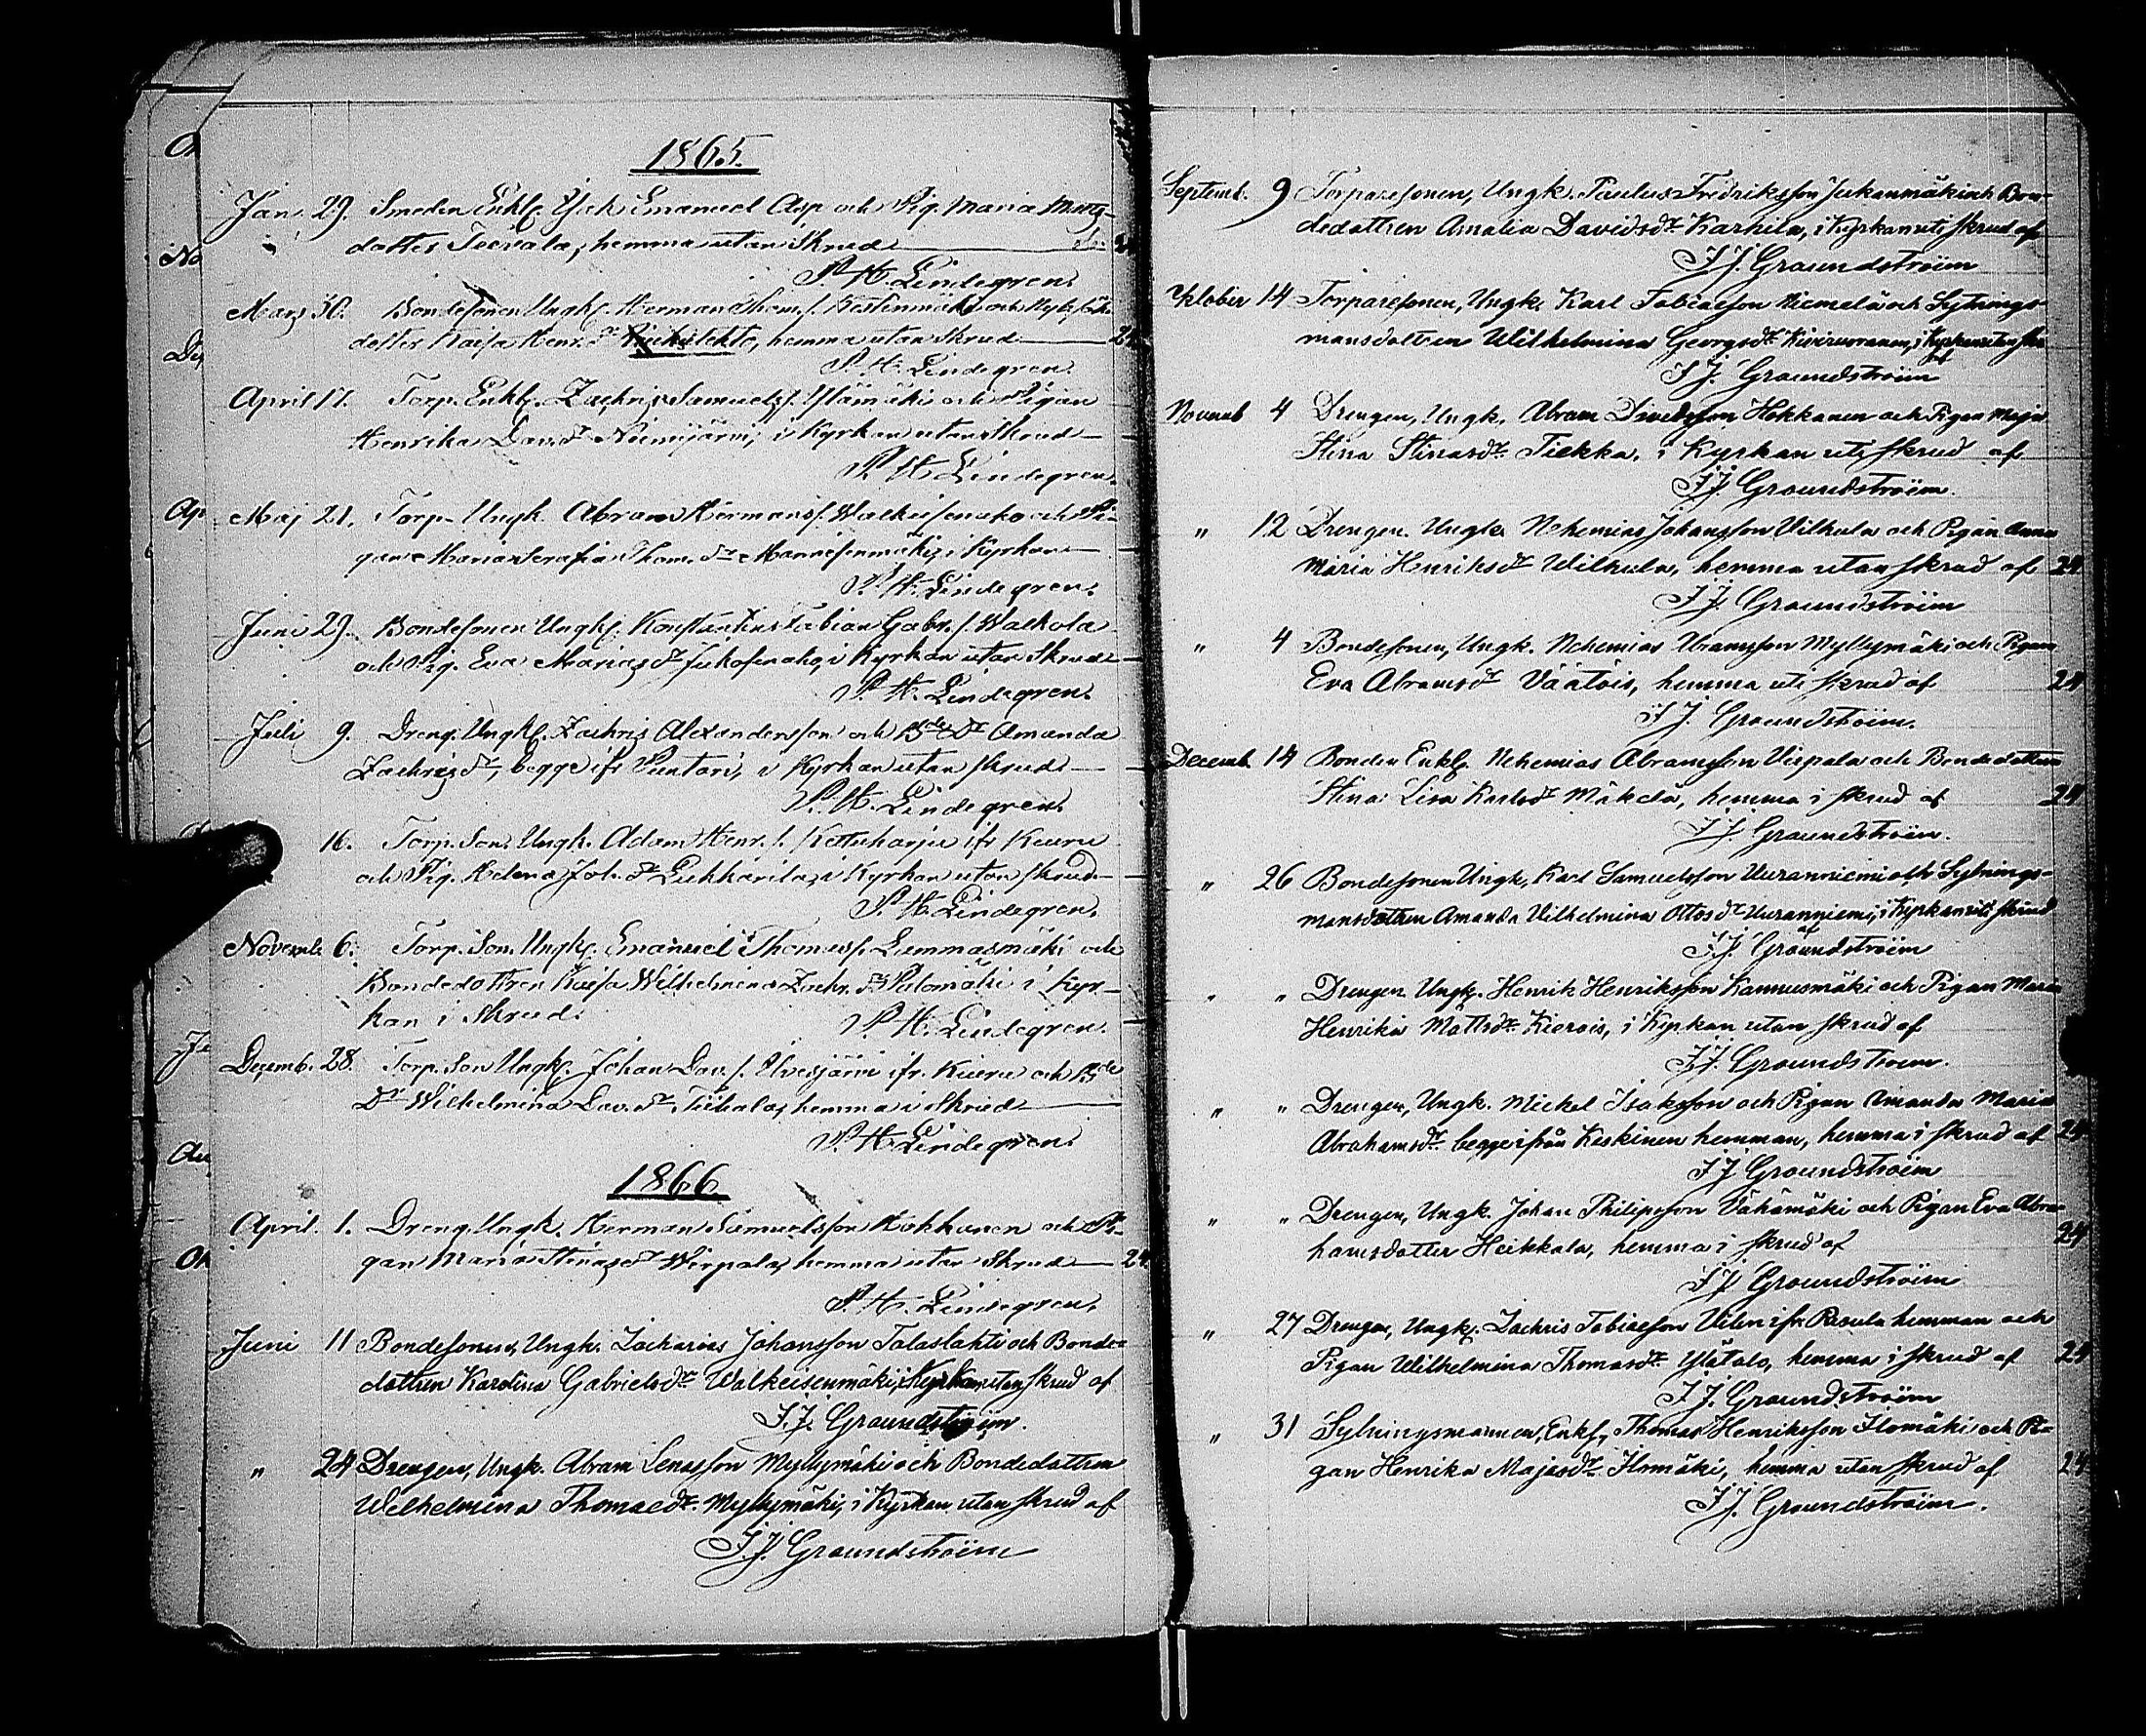 1865.
Jan. 29. Smeden Enkl. Isak Emanuel Asp och Pig. Maria
dotter hemma utan Skrud
P. H. Lindegren.
Mars 30. Bondesonen Ungk. Herman Thom. s.
dotter Kaisa Henr. dr hemma utan Skrud 24
P. H. Lindegren
April 17. Torp. Enkl. Zachris Samuelss. Ylämäki och Pigan
Henrika Dav. dr Niemijärvi, i Kyrkan utan Skrud
P. H. Lindegren.
Maj 21. Torp. Ungk. Abram Hermans s. och Pi-
gan Maria Serafia Thom. dr i Kyrkan
P. H. Lindegren.
Juni 29. Bondesonen Ungk. Konstantin Fabian Gabr. s. Walkola
och Pig. Eva Marias dr i Kyrkan utan Skrud
P. H. Lindegren.
Juli 9. Dreng. Ungk. Zachris Alexandersson och Bde Dr Amanda
Zachris dr, begge ifr. Puntari, i Kyrkan utan Skrud
P. H. Lindegren.
16. Torp. Son. Ungk. Adam Henr. s. Kettuharju ifr. Kueru
och Pig. Helena Joh. dr i Kyrkan utan Skrud
P. H. Lindegren.
Novemb. 6. Torp. Son. Ungk. Emanuel Thomas s. Lammasmäki och
Bondedottren Kaisa Wilhelmina Zachr. dr Palomäki i Kyr-
kan i Skrud.
P. H. Lindegren.
Decemb. 28. Torp. Son Ungk. Johan Dav. s. ifr. Kueru och Bde
Dr Wilhelmina Dav. dr hemma i Skrud
P. H. Lindegren.
1866.
April 1. Dreng. Ungk. Herman Samuelsson Hokkanen och Pi-
gan Maria Stinas dr Wirpala, hemma utan Skrud 24
P. H. Lindegren.
Juni 11 Bondesonen, Ungk. Zacharias Johansson Talaslahti och Bonde-
dottren Karolina Gabrielsdr Walkeisenmäki, i Kyrkan utan skrud af
F. J. Groundström.
" 24 Drengen, Ungk. Abram Lenasson Myllymäki och Bondedottren
Wilhelmina Thomasdr Myllymäki, i Kyrkan utan skrud af
F. J. Groundström
Septemb. 9 Torparesonen, Ungk. Paulus Fredriksson Jukanmäki och Bon-
dedottren Amalia Davidsdr Karhila, i Kyrkan uti skrud af
F. J. Groundström
October 14 Torparesonen, Ungk. Karl Tobiasson Niemelä och Sytnings-
mansdottren Wilhelmina Georgsdr Kivivuoranen, i Kyrkan utan
af
F. J. Groundström
Novemb 4 Drengen, Ungk. Abram Davidsson Hokkanen och Pigan Maja
Stina Stinasdr Tiekka, i Kyrkan uti skrud af
F. J. Groundström.
" 12 Drengen, Ungk. Nehemias Johansson Vilhula och Pigan Anna
Maria Henriksdr Wilhula, hemma utan skrud af 24
F. J. Groundström
" 4 Bondesonen, Ungk. Nehemias Abramsson Myllymäki och Pigan
Eva Abramsdr Väätäis, hemma uti skrud af 24
F. J. Groundström.
Decemb. 14 Bonden Enkl. Nehemias Abramsson Virpala och Bondedottren
Stina Lisa Karlsdr Mäkelä, hemma i skrud af 24
F. J. Groundström.
" 26 Bondesonen Ungk, Karl Samuelsson Vuoranniemi och Sytnings-
mansdottren Amanda Vilhelmina Ottosdr Vuoranniemi, i Kyrkan uti skrud
af
F. J. Groundström
" " Drengen Ungk. Henrik Henriksson Kannusmäki och Pigan Maria
Henrika Mattsdr Kierois, i Kyrkan utan skrud af
F. J. Groundström.
" " Drengen, Ungk. Mickel Isaksson och Pigan Amanda Maria
Abrahamsdr begge ifrån Keskinen hemman, hemma i skrud af 24
F. J. Groundström
" " Drengen, Ungk. Johan Philipsson Vähämäki och Pigan Eva Abra-
hamsdotter Heikkala, hemma i skrud af 24
F. J. Groundström
" 27 Drengen, Ungk. Zachris Tobiasson Vilen ifr. Paoula hemman och
Pigan Wilhelmina Thomasdr Ylätalo, hemma i skrud af 24
F. J. Groundström
" 31 Sytningsmannen, Enkl., Thomas Henriksson Ilomäki och Pi-
gan Henrika Majasdr Ilomäki, hemma utan skrud af 24
F. J. Groundström.